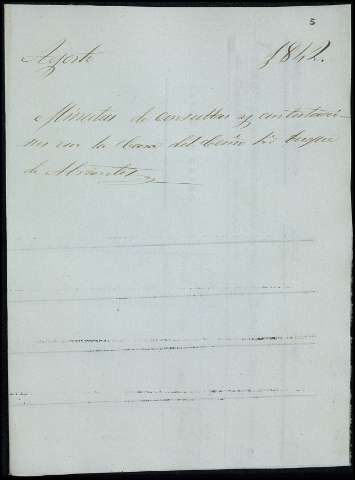 5
Agosto 1842.
Minutas de consultas y contestacio-
nes en la Casa del Exmo Sr. Duque
de Abrantes